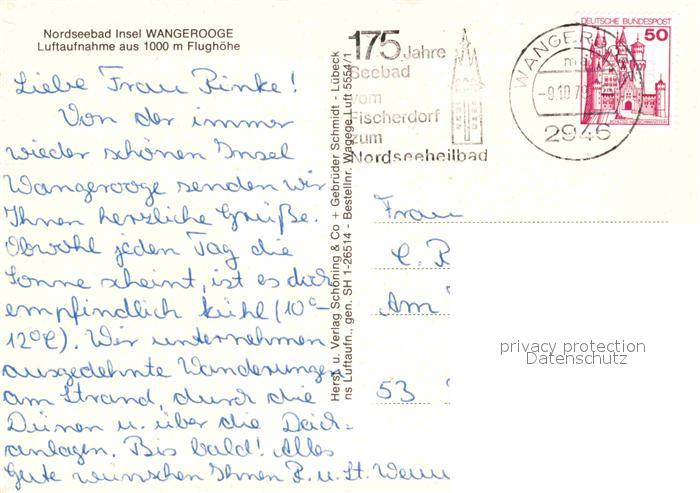 Nordseebad Insel WANGEROOGE
Luftaufnahme aus 1000 m Flughöhe
Liebe Frau Rinke!
Von der immer
wieder schönen Insel
Wangerooge senden wir
Ihnen herzliche Grüße.
Obwohl jeden Tag die
Sonne scheint, ist es doch
empfindlich kühl (10°-
12°C). Wir unternehmen
ausgedehnte Wanderungen
am Strand, durch die
Dünen u. über die Deich=
anlagen. Bis bald! Alles
Gute wünschen Ihnen R. u. St.
Herst. u. Verlag Schöning & Co + Gebrüder Schmidt - Lübeck
ns Luftaufn., gen. SH 1-26514 - Bestellnr. Wagege Luft 5554/1
175 Jahre
Seebad
vom
Fischerdorf
zum
Nordseeheilbad
WANGEROOGE
-9.10.79
2946
DEUTSCHE BUNDESPOST
50
Frau
C. R
Am
53
privacy protection
Datenschutz